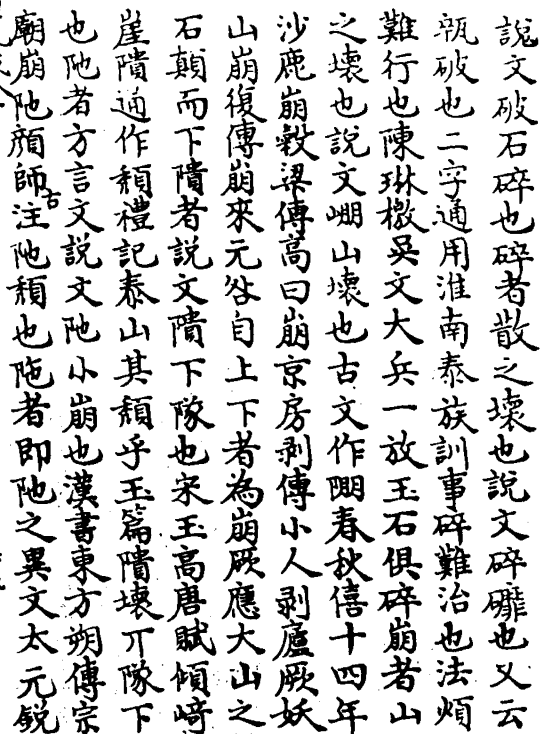 說文破石碎也碎者散之壞也說文碎䃺也又云
瓾破也二字通用淮南泰族訓事碎難治也法煩
難行也陳琳檄吳文大兵一放玉石俱碎崩者山
之壞也說文㟂山壞也古文作𨹹春秋僖十四年
沙鹿崩穀梁傳高曰崩京房剥傳小人剥廬厥妖
山崩復傳崩來元咎自上下者為崩厥應大山之
石顛而下隤者說文隤下隊也宋玉高唐賦傾崎
崖隤通作頽禮記泰山其頽乎玉篇隤壞丌隊下
也阤者方言文說文阤小崩也漢書東方朔傳宗
廟崩阤顏師古注阤頽也陁者即阤之異文太元銳